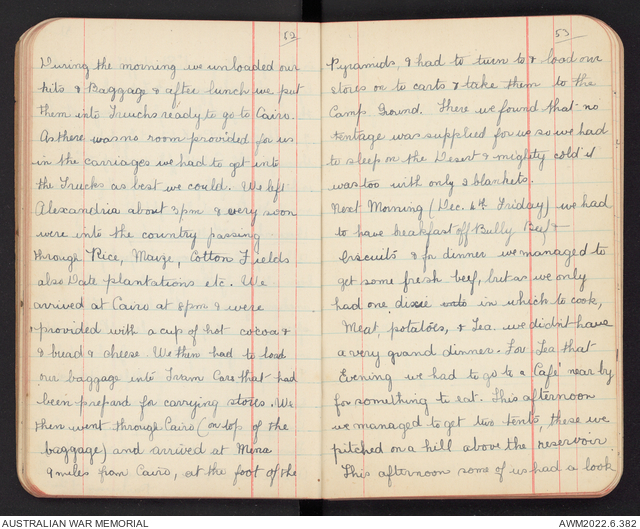 52
During the morning we unloaded our
kits & Baggage & after lunch we put
them into Trucks ready to go to Cairo.
As there was no room provided for us
in the carriages we had to get into
the Trucks as best we could. We left
Alexandria about 3pm & very soon
were into the country passing
through Rice, Maize, Cotton Fields
also Date plantations etc. We
arrived at Cairo at 8pm & were
provided with a cup of hot cocoa &
& bread & cheese. We then had to load
our baggage into Tram Cars that had
been prepard for carrying stores. We
then went through Cairo (on top of the
baggage) and arrived at Mena
9 miles from Cairo, at the foot of the
53
Pyramids, & had to turn to & load our
stores on to carts & take them to the
Camp Ground. There we found that no
tentage was supplied for us so we had
to sleep on the Desert & mighty cold it
was too with only 2 blankets.
Next Morning (Dec. 6th Friday) we had
to have breakfast off Bully Beef &
biscuits & for dinner we managed to
get some fresh beef, but as we only
had one dixie in which to cook,
Meat, potatoes, & Tea. we didn't have
a very grand dinner. For Tea that
Evening we had to go to a Café near by
for something to eat. This afternoon
we managed to get two tents, these we
pitched on a hill above the reservoir
This afternoon some of us had a look
AUSTRALIAN WAR MEMORIAL
AWM2022.6.382